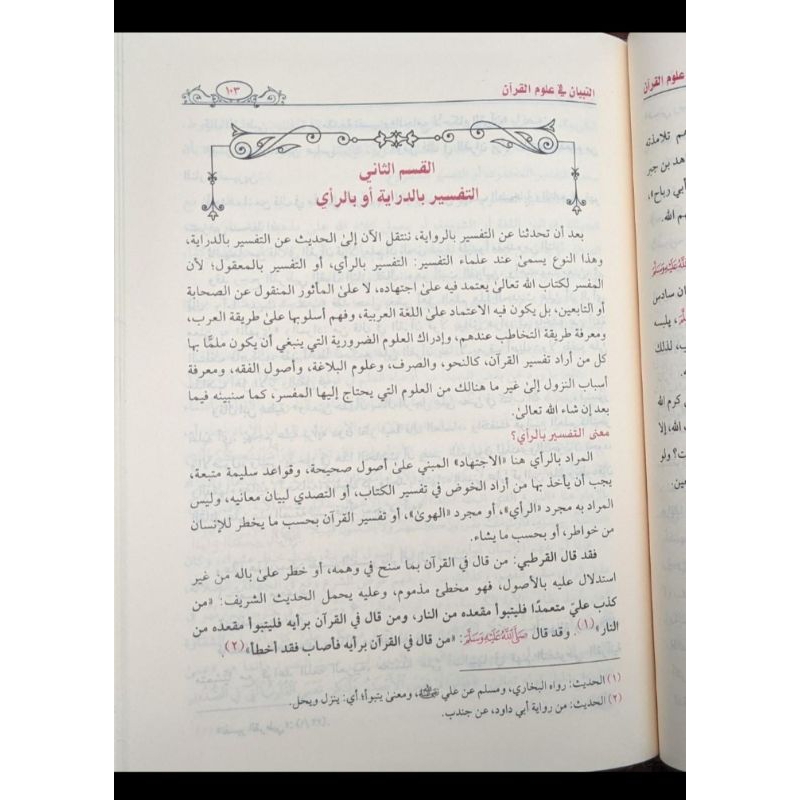 التبيان في علوم القرآن
١٠٣
القسم الثاني
التفسير بالدراية أو بالرأي
بعد أن تحدثنا عن التفسير بالرواية، ننتقل الآن إلى الحديث عن التفسير بالدراية،
وهذا النوع يسمى عند علماء التفسير: التفسير بالرأي، أو التفسير بالمعقول؛ لأن
المفسر لكتاب الله تعالى يعتمد فيه على اجتهاده، لا على المأثور المنقول عن الصحابة
أو التابعين، بل يكون فيه الاعتماد على اللغة العربية، وفهم أسلوبها على طريقة العرب،
ومعرفة طريقة التخاطب عندهم، وإدراك العلوم الضرورية التي ينبغي أن يكون ملمًّا بها
كل من أراد تفسير القرآن، كالنحو، والصرف، وعلوم البلاغة، وأصول الفقه، ومعرفة
أسباب النزول إلى غير ما هنالك من العلوم التي يحتاج إليها المفسر، كما سنبينه فيما
بعد إن شاء الله تعالى.
معنى التفسير بالرأي؟
المراد بالرأي هنا «الاجتهاد» المبني على أصول صحيحة، وقواعد سليمة متبعة،
يجب أن يأخذ بها من أراد الخوض في تفسير الكتاب، أو التصدي لبيان معانيه، وليس
المراد به مجرد «الرأي»، أو مجرد «الهوى»، أو تفسير القرآن بحسب ما يخطر للإنسان
من خواطر، أو بحسب ما يشاء.
فقد قال القرطبي: من قال في القرآن بما سنح في وهمه، أو خطر على باله من غير
استدلال عليه بالأصول، فهو مخطئ مذموم، وعليه يحمل الحديث الشريف: «من
كذب عليّ متعمدًا فليتبوأ مقعده من النار، ومن قال في القرآن برأيه فليتبوأ مقعده من
النار»(١). وقد قال ﷺ: «من قال في القرآن برأيه فأصاب فقد أخطأ»(٢).
(١) الحديث: رواه البخاري، ومسلم عن علي، ومعنى يتبوأ؛ أي: ينزل ويحل.
(٢) الحديث: من رواية أبي داود، عن جندب.
علوم القرآن
هم تلامذته
هد بن جبر
أبي رباح»،
هم الله.
ﷺ
ان سادس
يلبسه
لذلك
كرم الله
الله، إلا
ت؟ ولو
عين.